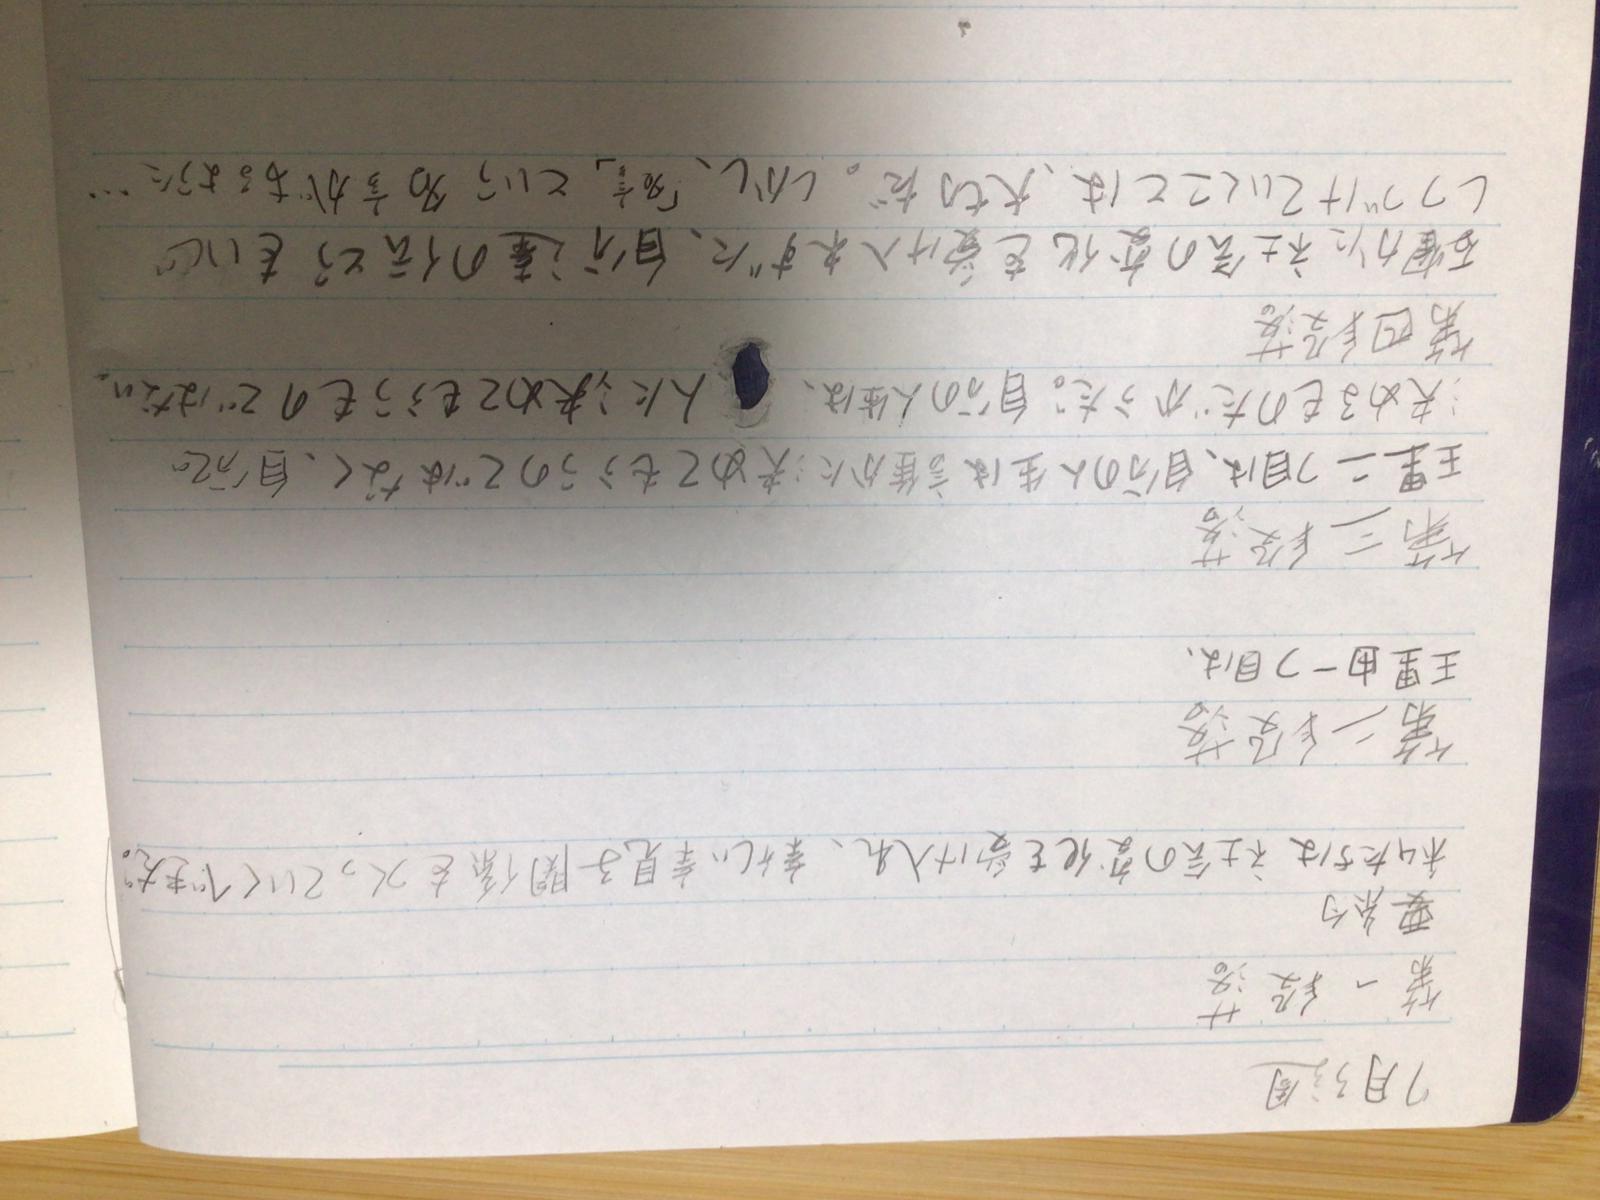 7月3週
第一段落
要約
私たちは社会の変化を受け入れ、新しい親子関係をつくっていくべきだ。
第二段落
理由一つ目は、
第三段落
理二つ目は、自分の人生は誰かに決めてもらうのではなく、自分で
決めるものだからだ。自分の人生は、人に決めてもらうものではない。
第四段落
確かに社会の変化を受け入れずに、自分達の伝とうをいじ
しつづけていくことは、大切だ。しかし、「 」という名言があるように…